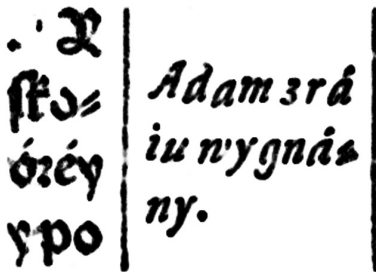 óréy
y po
Adam z rá
iu wygná⸗
ny.